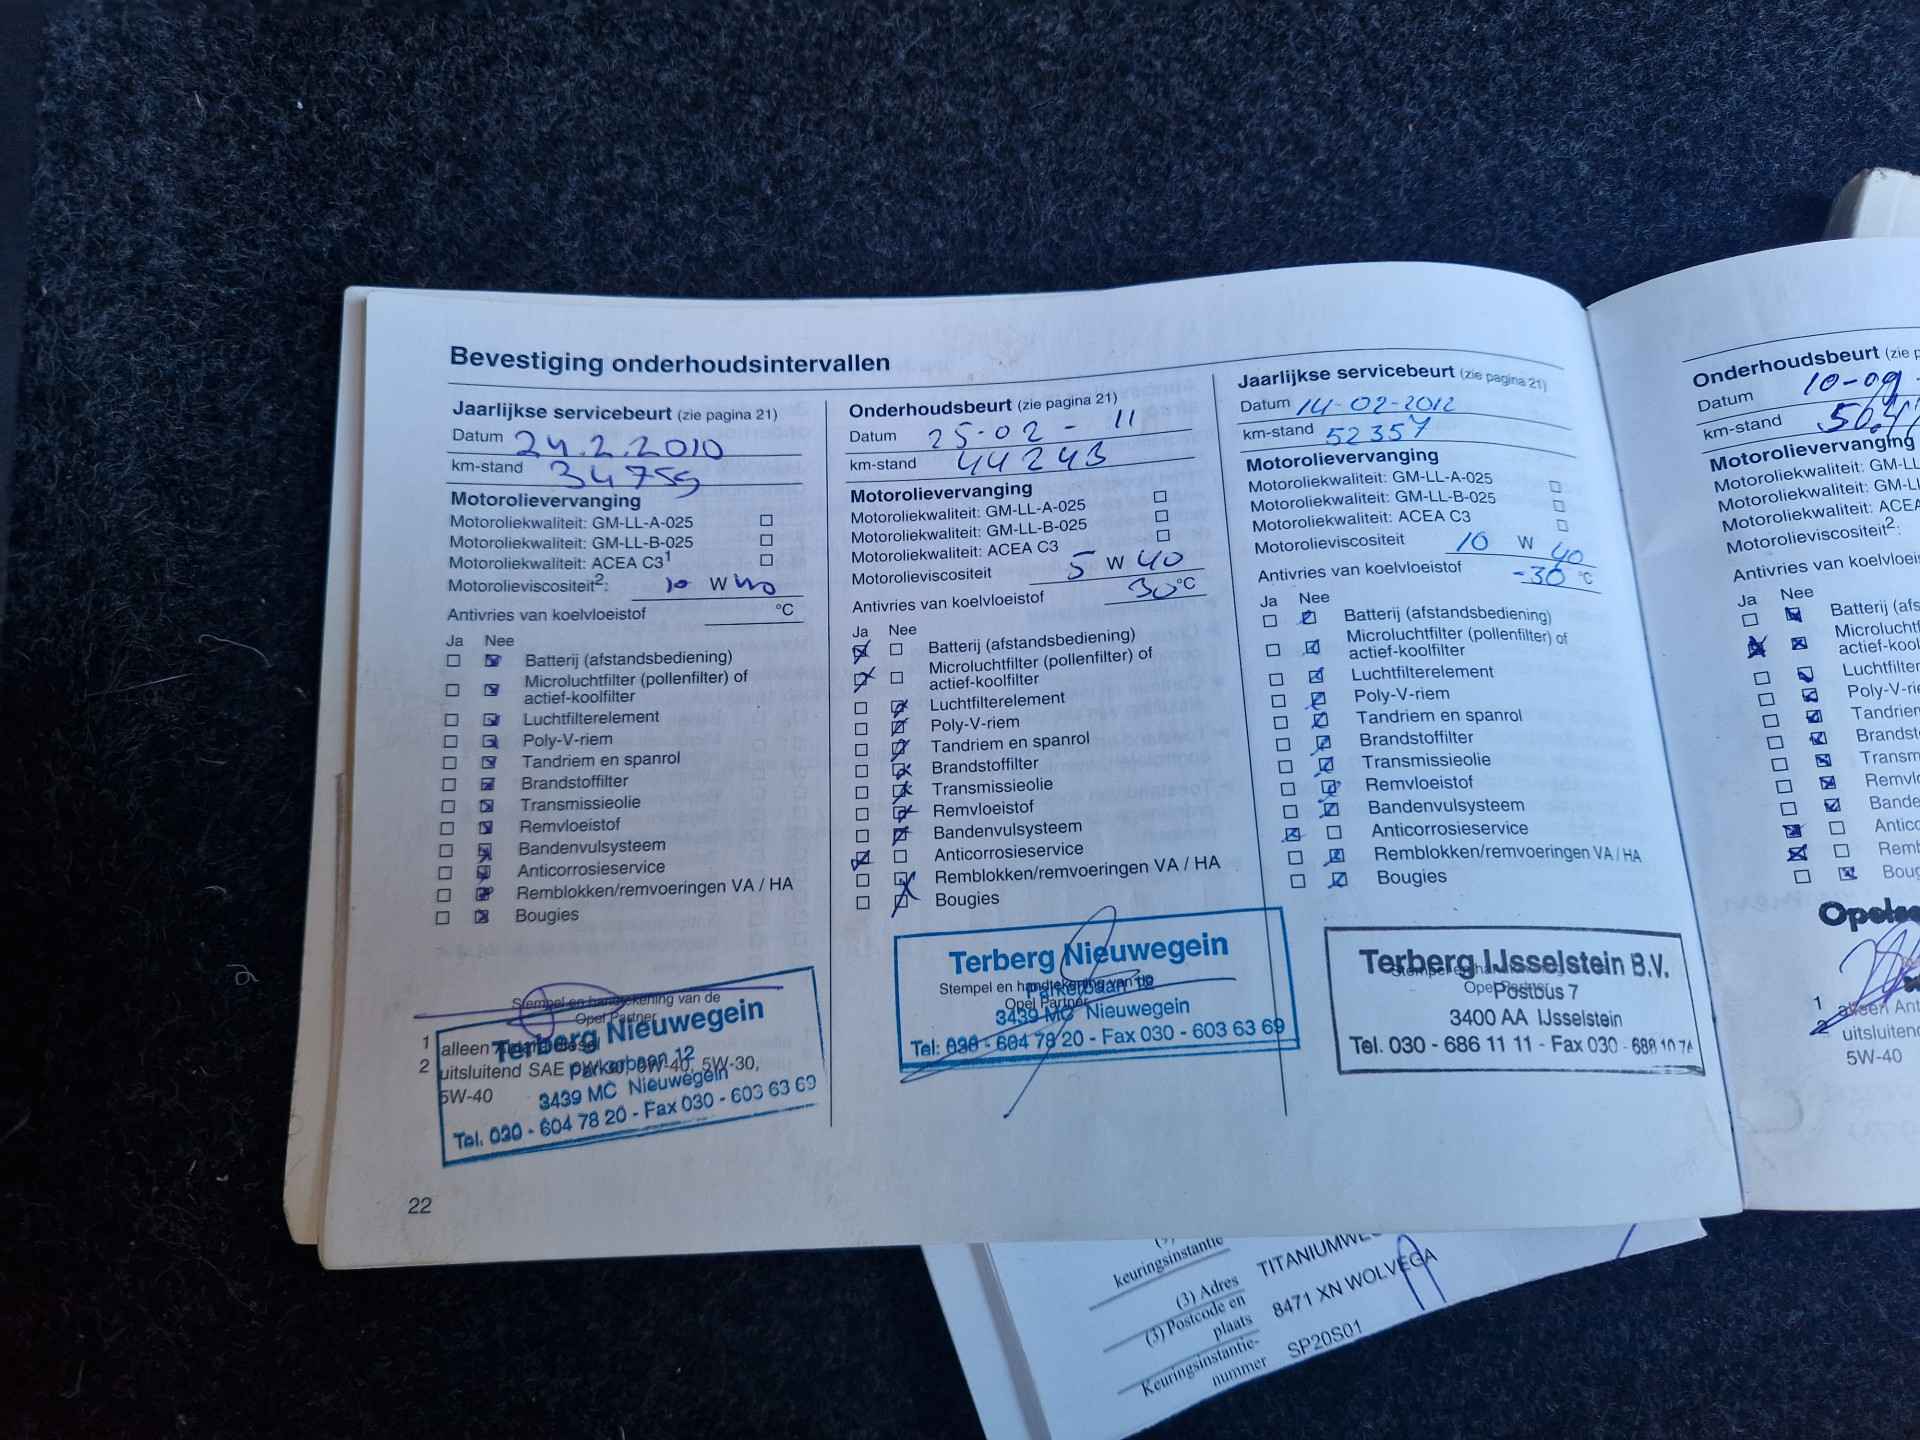 Bevestiging onderhoudsintervallen
Jaarlijkse servicebeurt (zie pagina 21)
Datum 24.2.2010
km-stand 34759
Motorolievervanging
Motoroliekwaliteit: GM-LL-A-025
Motoroliekwaliteit: GM-LL-B-025
Motoroliekwaliteit: ACEA C3¹
Motorolieviscositeit²: 10 W 40
Antivries van koelvloeistof °C
Ja Nee
Batterij (afstandsbediening)
Microluchtfilter (pollenfilter) of
actief-koolfilter
Luchtfilterelement
Poly-V-riem
Tandriem en spanrol
Brandstoffilter
Transmissieolie
Remvloeistof
Bandenvulsysteem
Anticorrosieservice
Remblokken/remvoeringen VA / HA
Bougies
Stempel en handtekening van de
Opel Partner
Terberg Nieuwegein
Parkerbaan 12
3439 MC Nieuwegein
Tel. 030 - 604 78 20 - Fax 030 - 603 63 69
1 alleen
2 uitsluitend SAE 0W-30, 0W-40, 5W-30,
5W-40
22
Onderhoudsbeurt (zie pagina 21)
Datum 25-02-11
km-stand 44243
Motorolievervanging
Motoroliekwaliteit: GM-LL-A-025
Motoroliekwaliteit: GM-LL-B-025
Motoroliekwaliteit: ACEA C3
Motorolieviscositeit 5 W 40
Antivries van koelvloeistof 30 °C
Ja Nee
Batterij (afstandsbediening)
Microluchtfilter (pollenfilter) of
actief-koolfilter
Luchtfilterelement
Poly-V-riem
Tandriem en spanrol
Brandstoffilter
Transmissieolie
Remvloeistof
Bandenvulsysteem
Anticorrosieservice
Remblokken/remvoeringen VA / HA
Bougies
Terberg Nieuwegein
Stempel en handtekening van de
Opel Partner
Parkerbaan 12
3439 MC Nieuwegein
Tel: 030 - 604 78 20 - Fax 030 - 603 63 69
Jaarlijkse servicebeurt (zie pagina 21)
Datum 14-02-2012
km-stand 52357
Motorolievervanging
Motoroliekwaliteit: GM-LL-A-025
Motoroliekwaliteit: GM-LL-B-025
Motoroliekwaliteit: ACEA C3
Motorolieviscositeit 10 W 40
Antivries van koelvloeistof -30 °C
Ja Nee
Batterij (afstandsbediening)
Microluchtfilter (pollenfilter) of
actief-koolfilter
Luchtfilterelement
Poly-V-riem
Tandriem en spanrol
Brandstoffilter
Transmissieolie
Remvloeistof
Bandenvulsysteem
Anticorrosieservice
Remblokken/remvoeringen VA / HA
Bougies
Terberg IJsselstein B.V.
Stempel en
Opel Partner
Postbus 7
3400 AA IJsselstein
Tel. 030 - 686 11 11 - Fax 030 - 686 10 74
Onderhoudsbeurt (zie p
Datum 10-09-
km-stand
Motorolievervanging
Motoroliekwaliteit: GM-LL
Motoroliekwaliteit: GM-L
Motoroliekwaliteit: ACEA
Motorolieviscositeit²:
Antivries van koelvloeis
Ja Nee
Batterij (afs
Microluchtf
actief-kool
Luchtfilter
Poly-V-rie
Tandriem
Brandsto
Transm
Remvlo
Bande
Antico
Remb
Boug
Opelse
1 alleen Ant
2 uitsluitend
5W-40
keuringsinstantie TITANIUMWE
(3) Adres
(3) Postcode en
plaats 8471 XN WOLVEGA
Keuringsinstantie-
nummer SP20S01